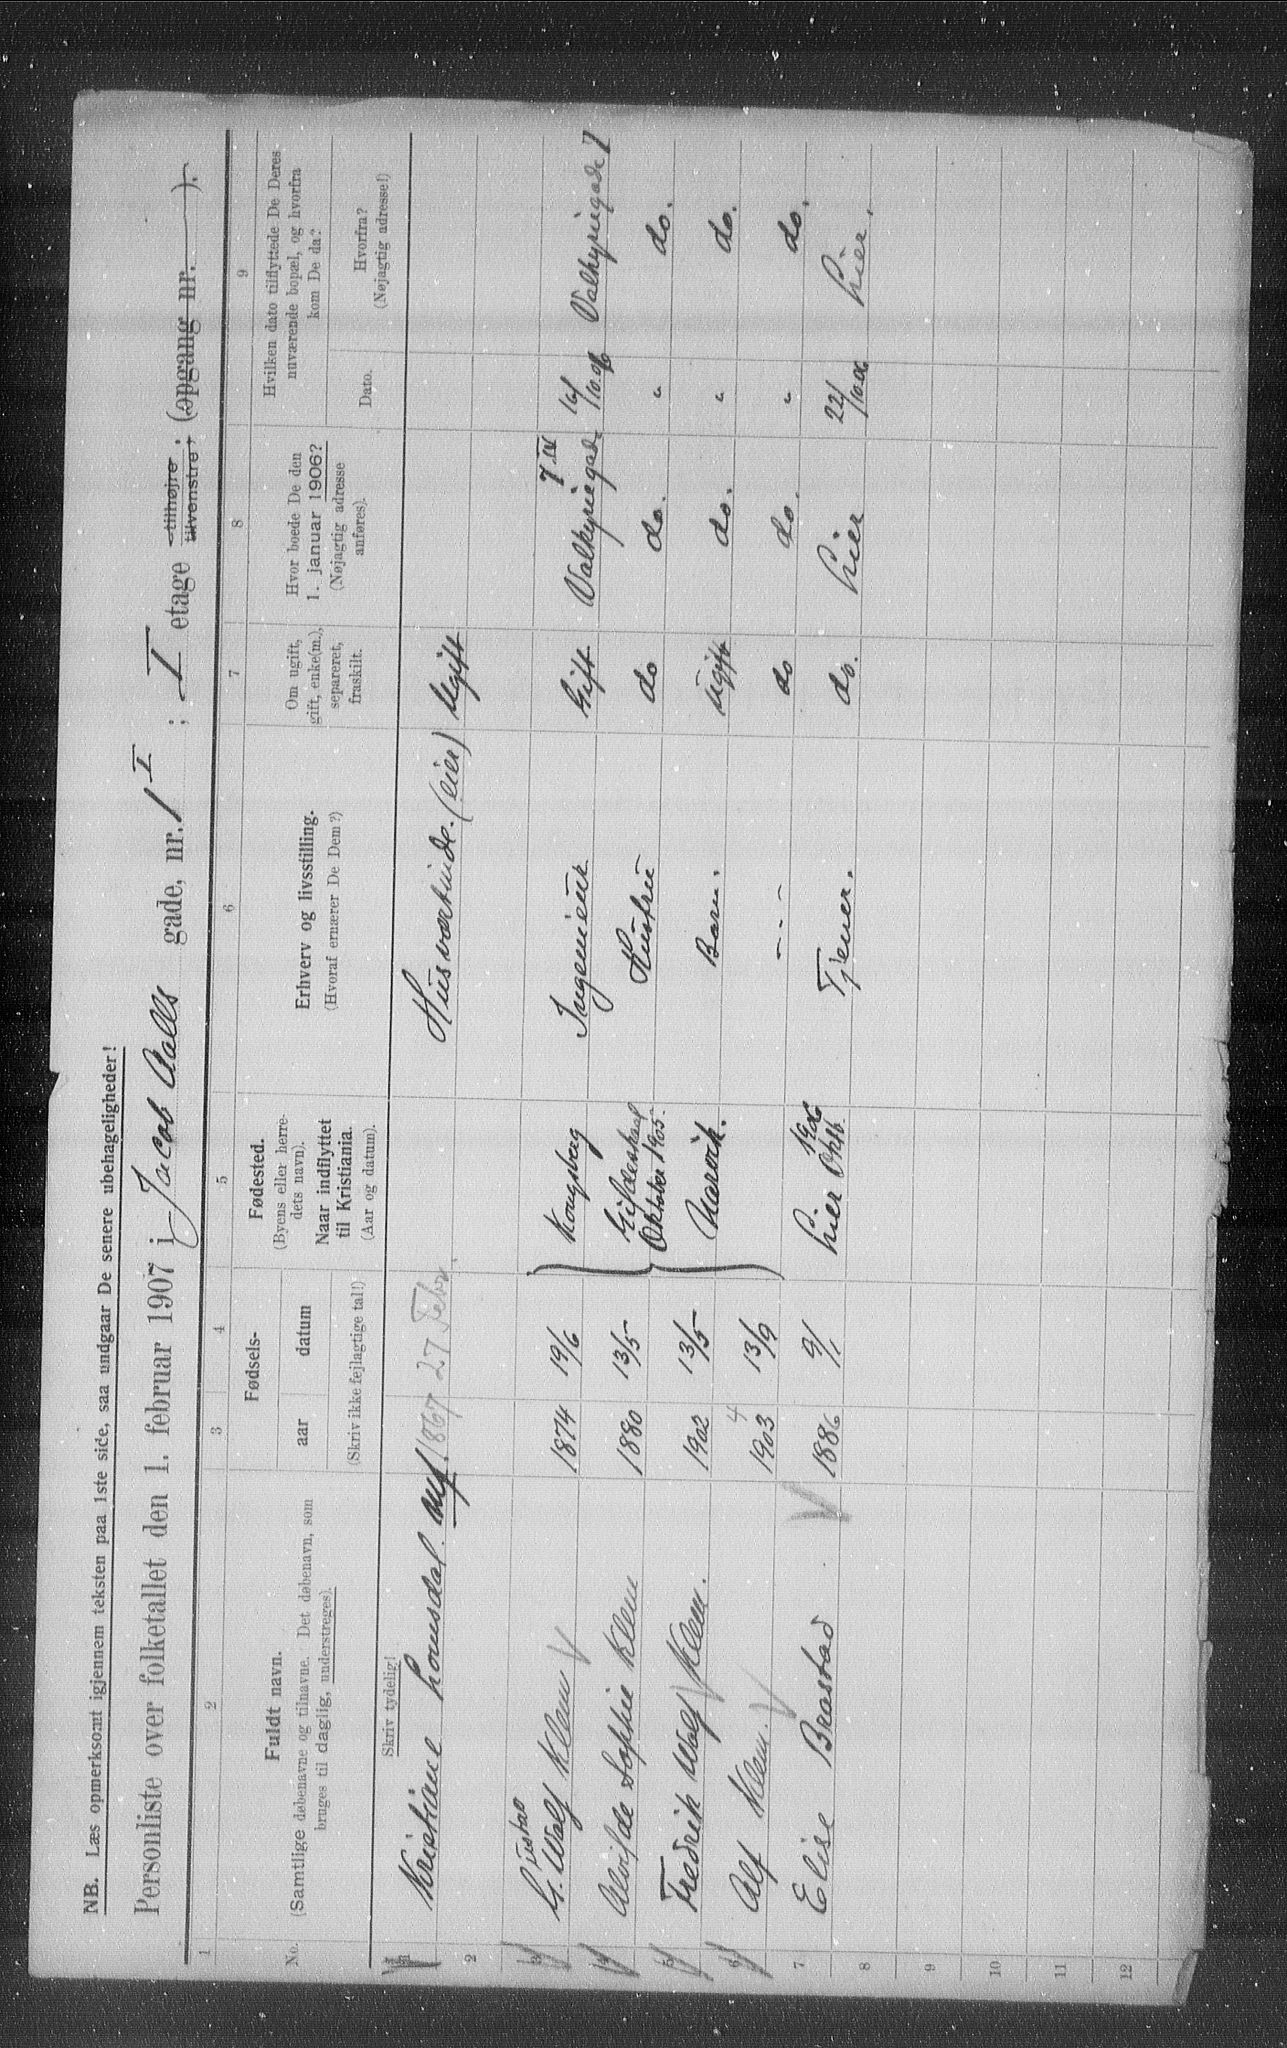 NB. Læs opmerksomt igjennem teksten paa 1ste side, saa undgaar De senere ubehageligheder!
Personliste over folketallet den 1. februar 1907 i Jacob Aalls gade, nr. 1 I ; I etage tilhøjre tilvenstre ; (opgang nr. ).
1 2 3 4 5 6 7 8 9
No.
Fuldt navn.
(Samtlige døbenavne og tilnavne. Det døbenavn, som
bruges til daglig, understreges).
Skriv tydelig!
Fødsels-
aar datum
(Skriv ikke fejlagtige tal!)
Fødested.
(Byens eller herre-
dets navn).
Naar indflyttet
til Kristiania.
(Aar og datum).
Erhverv og livsstilling.
(Hvoraf ernærer De Dem?)
Om ugift,
gift, enke(m.),
separeret,
fraskilt.
Hvor boede De den
1. januar 1906?
(Nøjagtig adresse
anføres).
Hvilken dato tilflyttede De Deres
nuværende bopæl, og hvorfra
kom De da?
Dato.
Hvorfra?
(Nøjagtig adresse!)
1 Kristiane Lomsdal. 1867 27 Febr. Husværtinde. (eier) Ugift
2
3 Gustav Wolf Klem 1874 19/6 Kongsberg Ingeniør Gift Valkyriegade 7 IV 16/10.06 Valkyriegade 7
4 Alvilde Sophie Klem 1880 13/5 Gildeskaal Oktober 1905. Hustru do do. " do.
5 Fredrik Wolf Klem. 1902 13/5 Narvik. Barn. ugift do. " do.
6 Alf Klem. 1903 4 13/9 - - - do do. " do.
7 Elise Brastad 1886 9/1 Lier Oktb. 1906 Tjener. do. Lier 22/10.06 Lier.
8
9
10
11
12